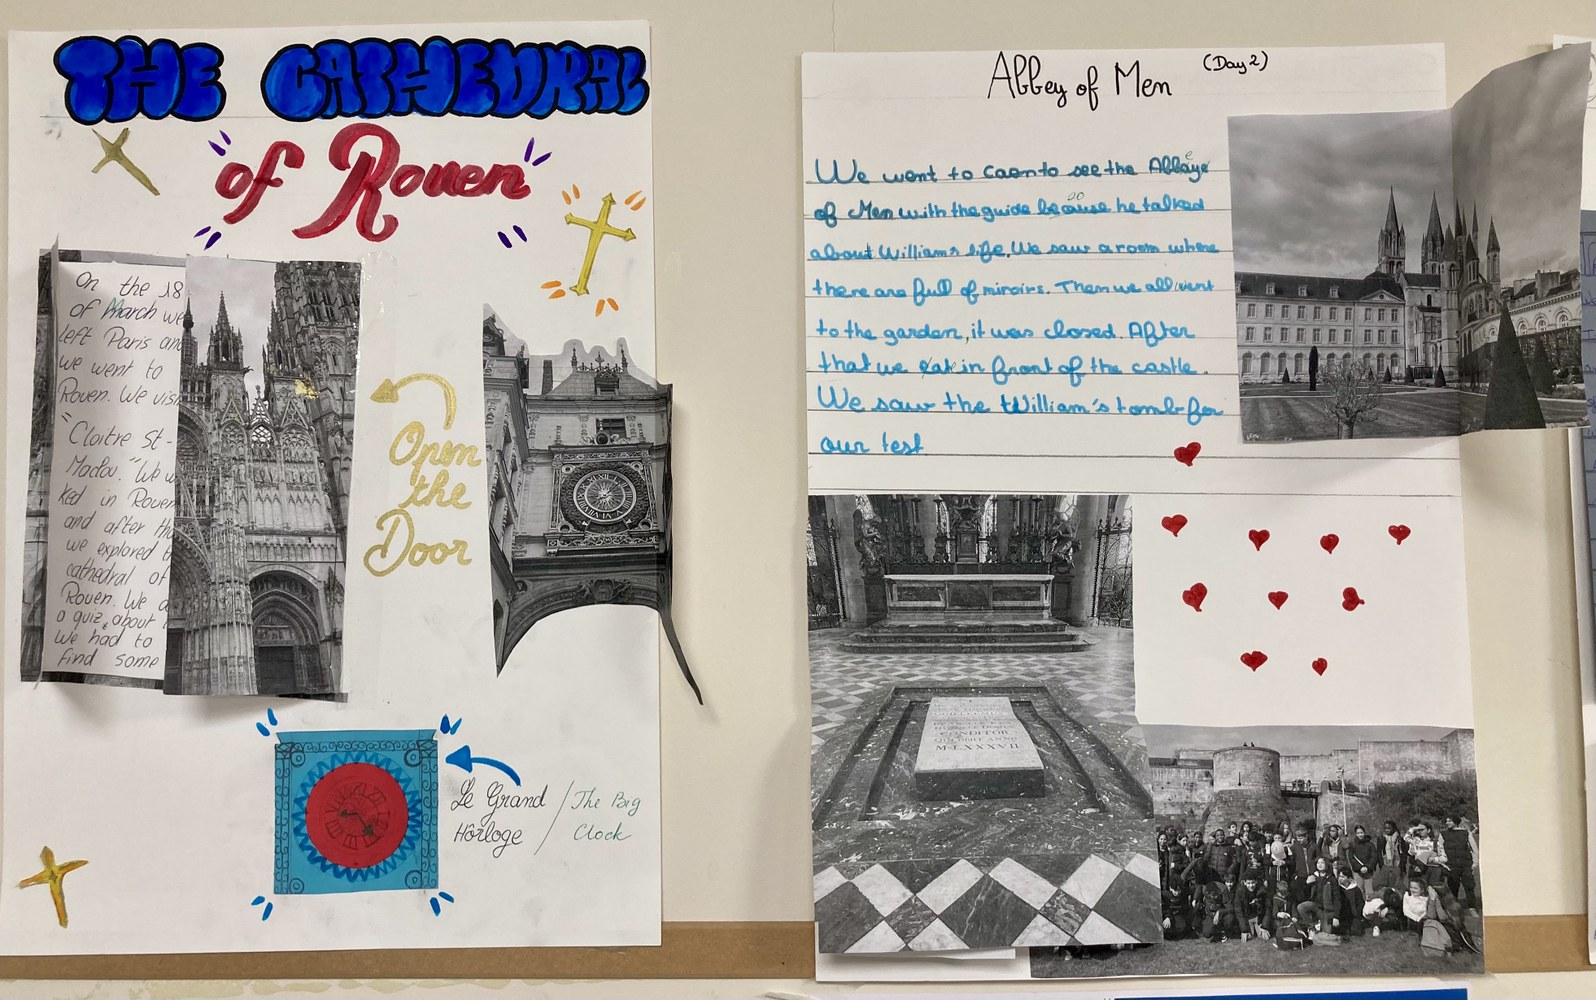 THE CATHEDRAL
of Rouen
On the 18
of March we
left Paris an
we went to
Rouen. We visi
"Cloitre St-
Maclou." We w
ked in Rouen
and after th
we explored
cathedral of
Rouen. We
a quiz, about
We had to
find some
Open
the
Door
Le Grand
Hôrloge
/ The Big
Clock
Abbey of Men (Day 2)
We went to Caen to see the Abbaye
of Men with the guide because he talked
about William's life. We saw a room where
there are full of miroirs. Then we all went
to the garden, it was closed. After
that we eat in front of the castle.
We saw the William's tomb for
our test
CONDITOR
M·LXXXVII